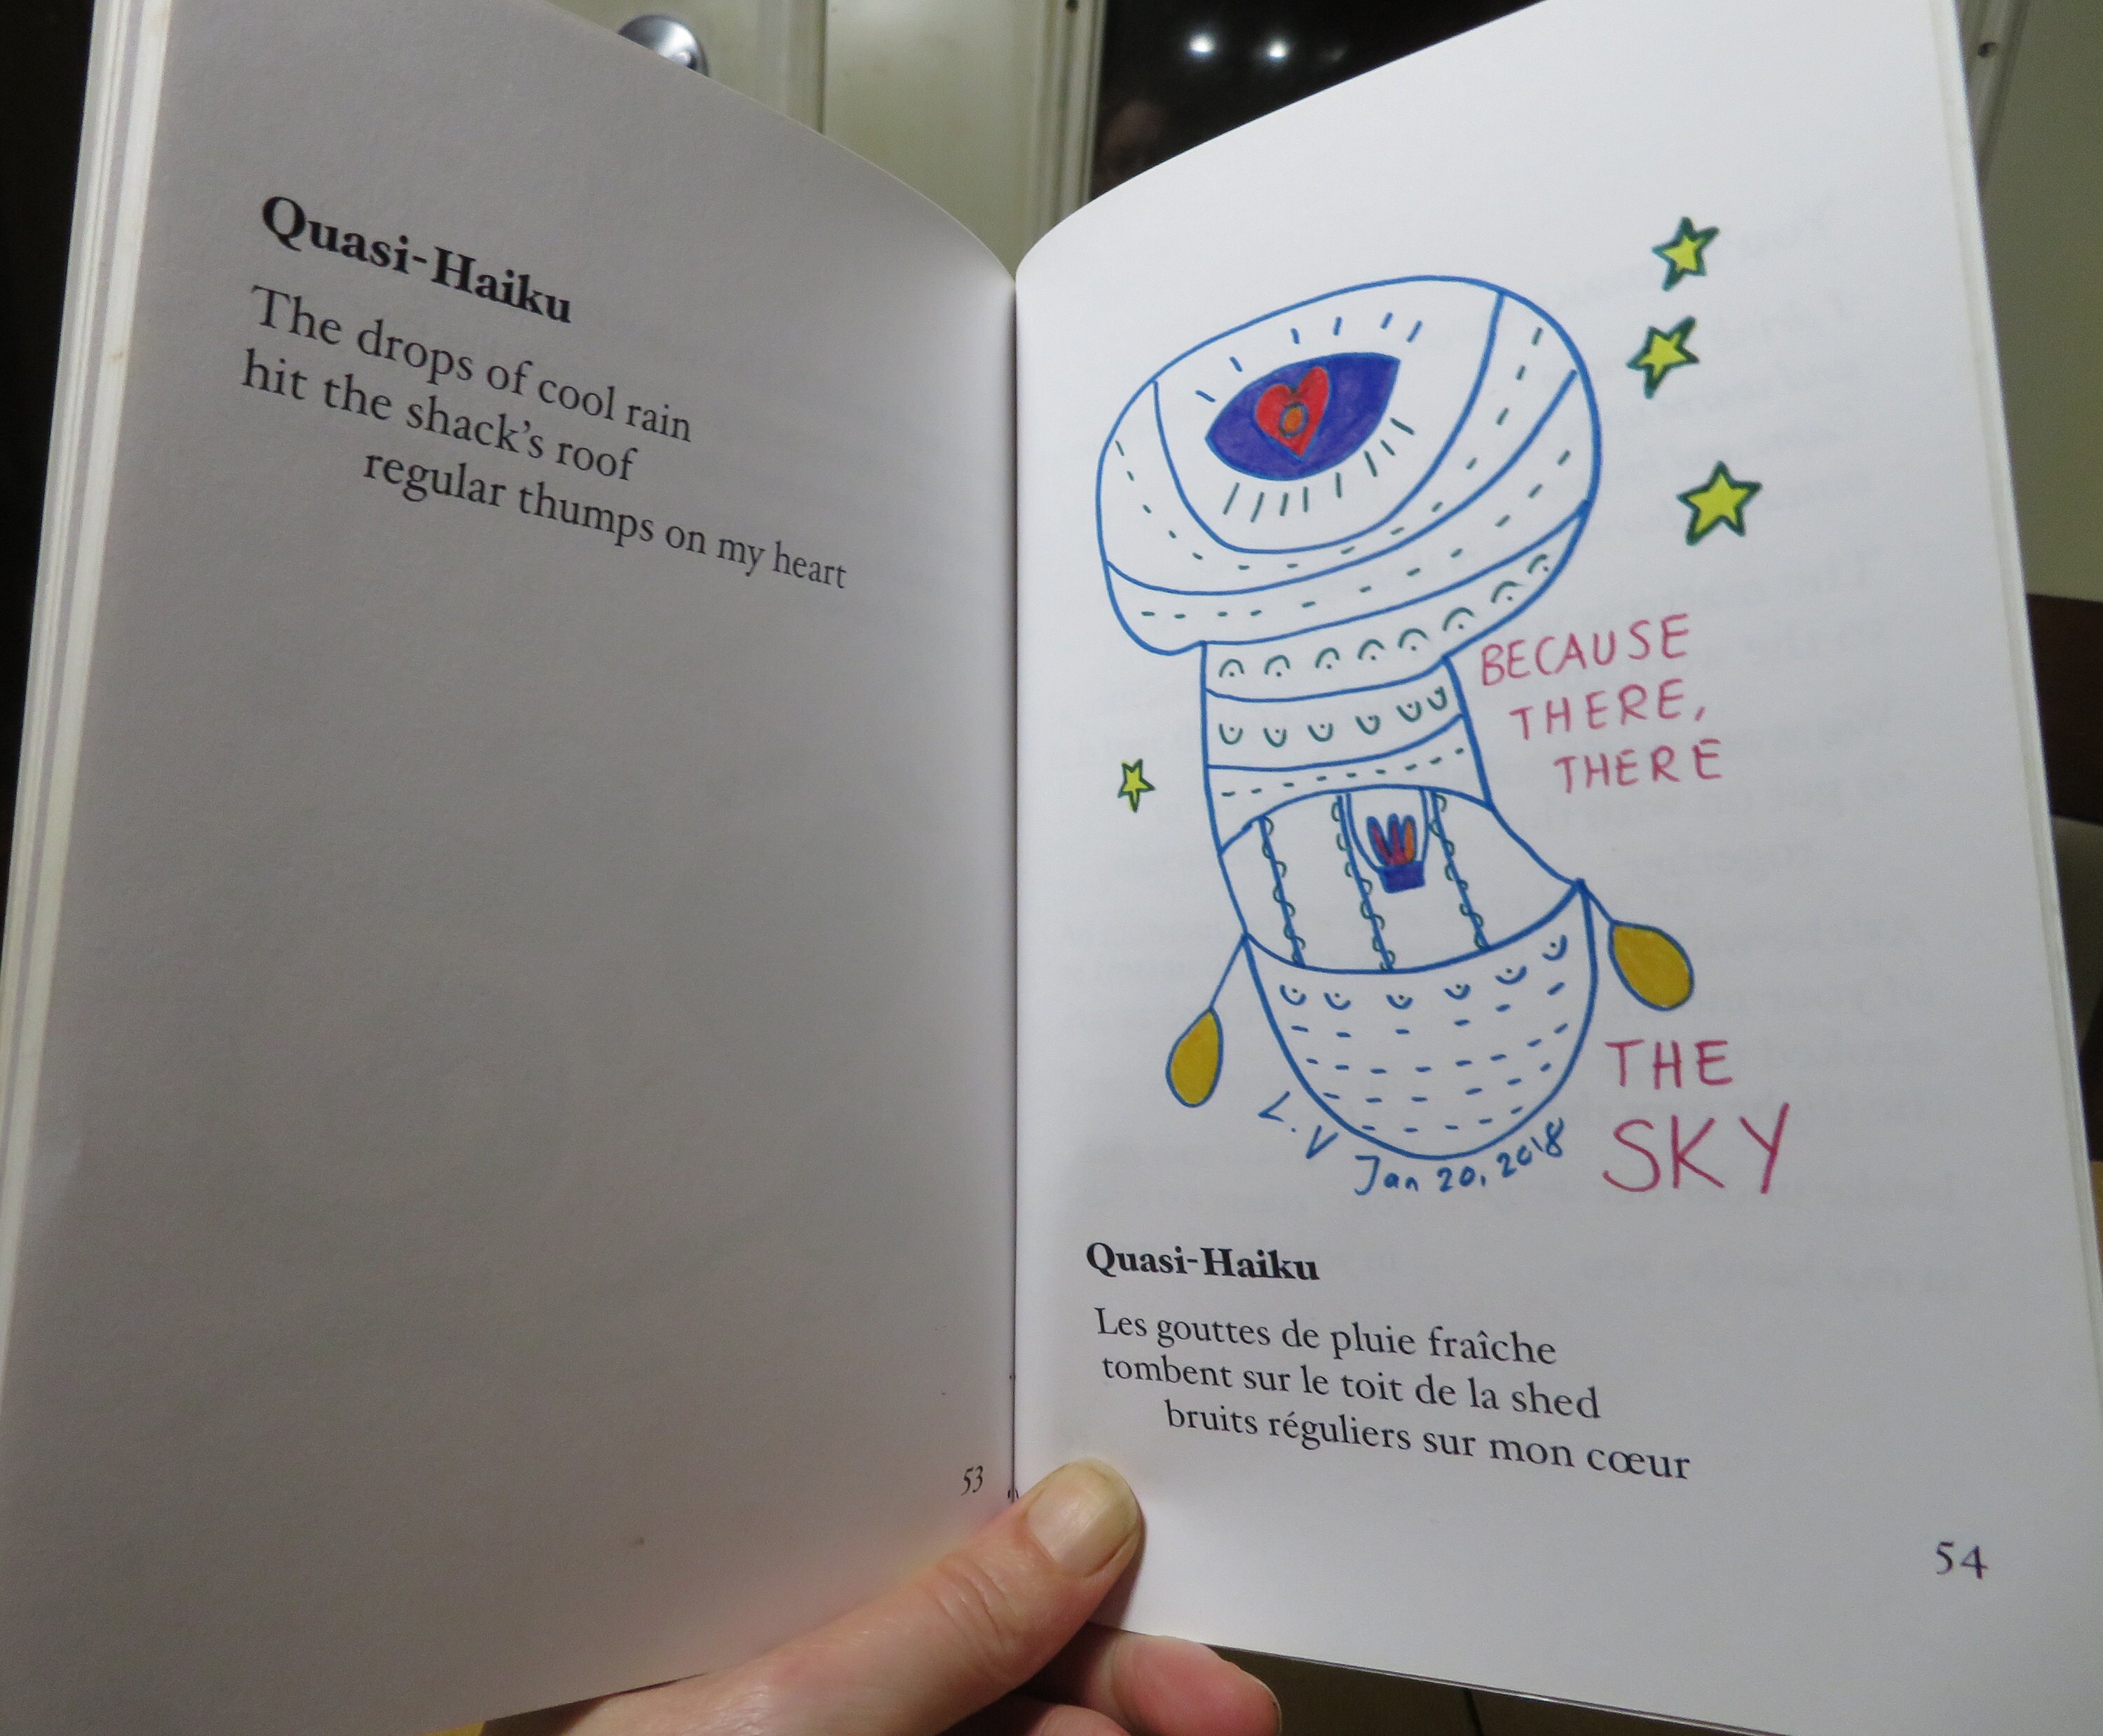 Quasi-Haiku
The drops of cool rain
hit the shack's roof
regular thumps on my heart
53
BECAUSE
THERE,
THERE
THE
SKY
L.V
Jan 20, 2018
Quasi-Haiku
Les gouttes de pluie fraîche
tombent sur le toit de la shed
bruits réguliers sur mon cœur
54